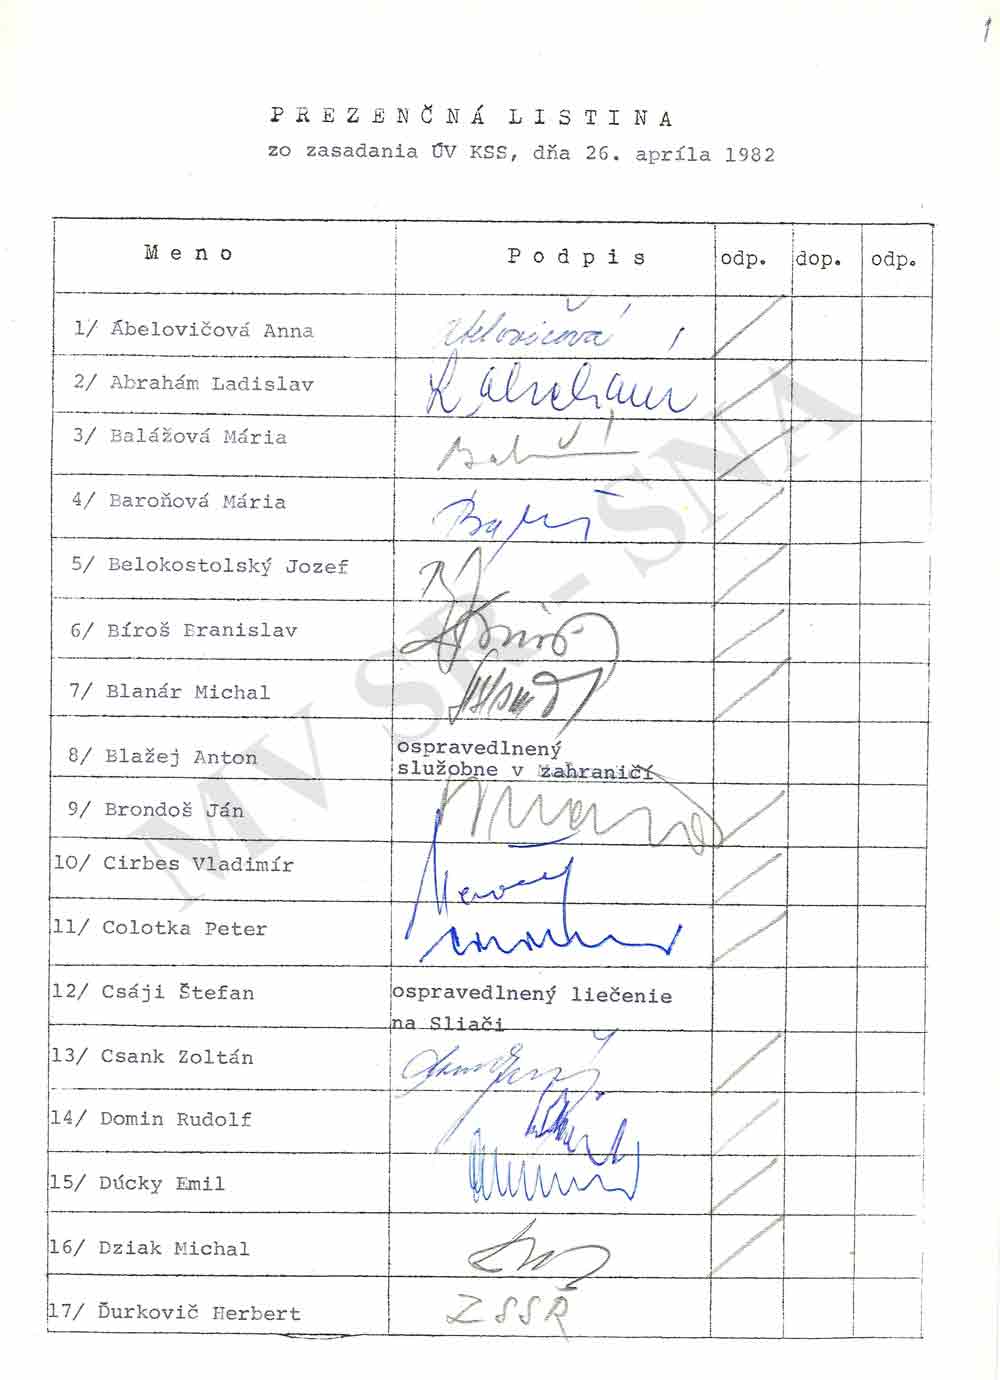 1
PREZENČNÁ LISTINA
zo zasadania ÚV KSS, dňa 26. apríla 1982
Meno Podpis odp. dop. odp.
1/ Ábelovičová Anna
2/ Abrahám Ladislav
3/ Balážová Mária
4/ Baroňová Mária
5/ Belokostolský Jozef
6/ Bíroš Branislav
7/ Blanár Michal
8/ Blažej Anton ospravedlnený
služobne v zahraničí
9/ Brondoš Ján
10/ Cirbes Vladimír
11/ Colotka Peter
12/ Csáji Štefan ospravedlnený liečenie
na Sliači
13/ Csank Zoltán
14/ Domin Rudolf
15/ Dúcky Emil
16/ Dziak Michal
17/ Ďurkovič Herbert ZSSR
MV SR - SNA